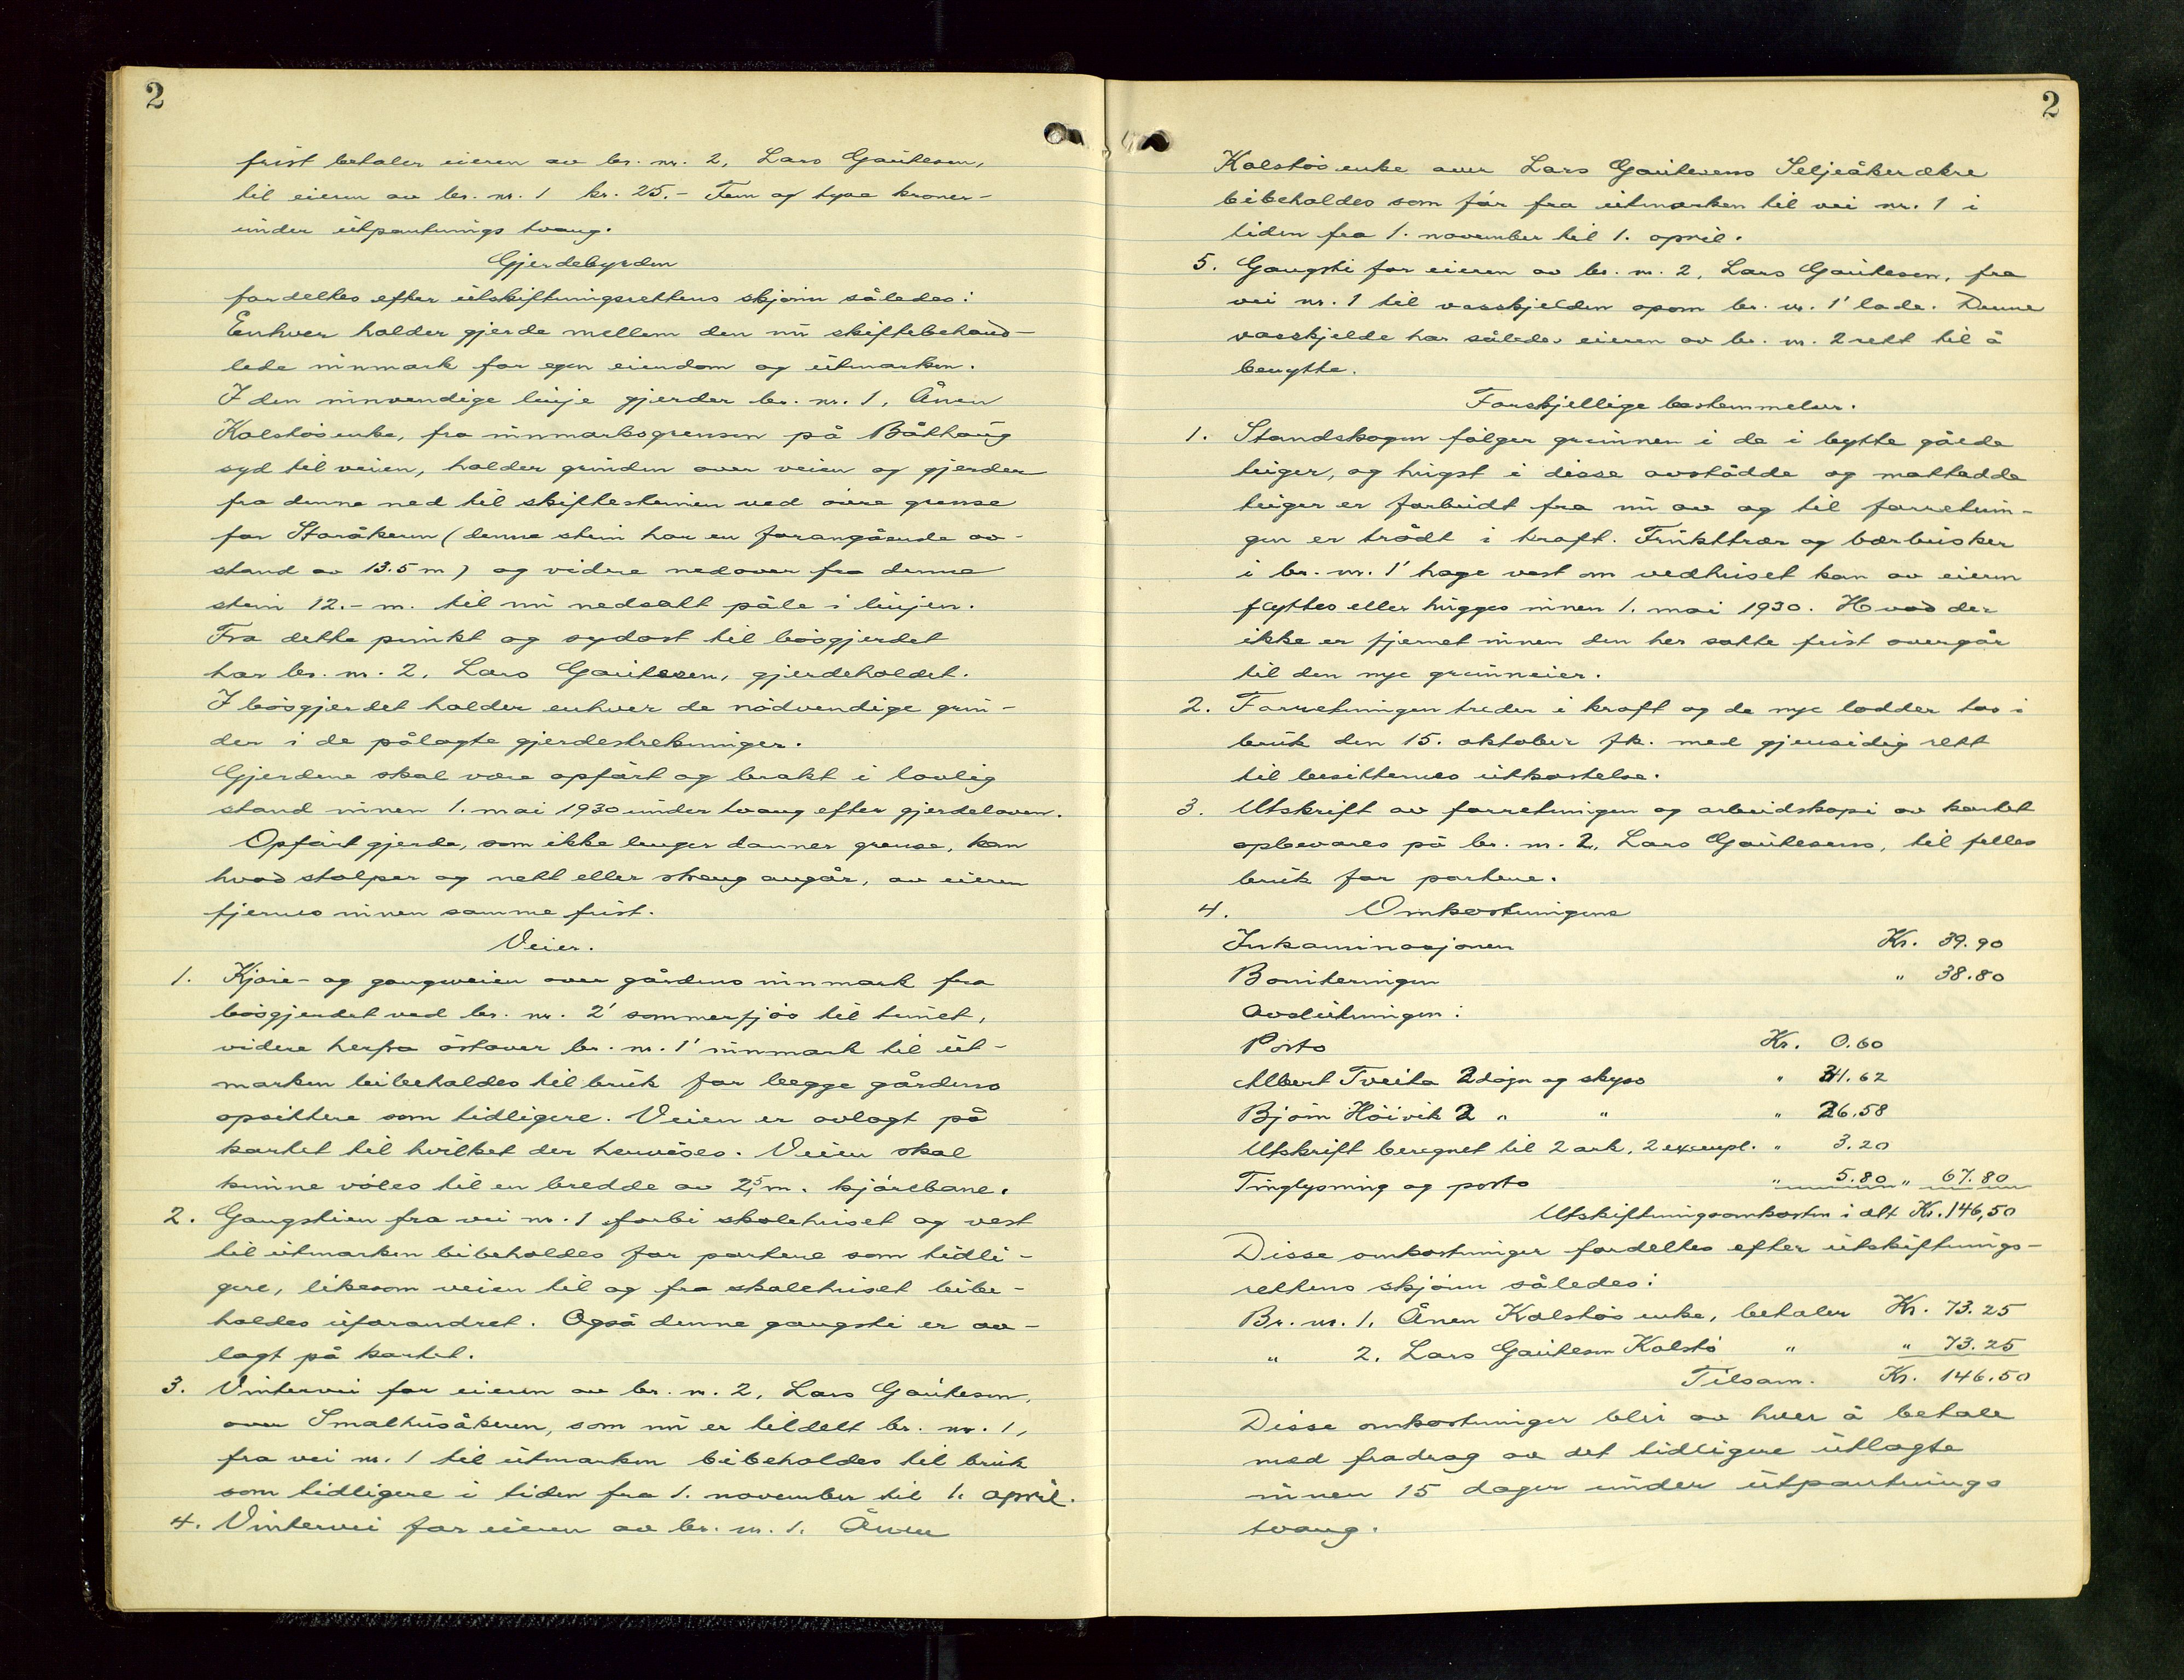 2
frist betaler eieren av br. nr. 2, Lars Gautesen,
til eieren av br. nr. 1 kr. 25.- Fem og tyve kroner-
under utpantnings tvang.
Gjerdebyrden
fordeltes efter utskiftningsrettens skjønn således:
Enhver holder gjerde mellem den nu skiftebehand-
lede innmark for egen eiendom og utmarken.
I den innvendige linje gjerder br. nr. 1, Ånen
Kolstøs enke, fra innmarksgrensen på Båthaug
syd til veien, holder grinden over veien og gjerder
fra denne ned til skiftesteinen ved øvre grense
for Storåkeren (denne stein har en forangående av-
stand av 13.5 m) og videre nedover fra denne
stein 12.- m. til nu nedsatt påle i linjen.
Fra dette punkt og sydost til bøsgjerdet
har br. nr. 2, Lars Gautesen, gjerdeholdet.
I bøsgjerdet holder enhver de nødvendige grin-
der i de pålagte gjerdestrekninger.
Gjerdene skal være opført og brakt i lovlig
stand innen 1. mai 1930 under tvang efter gjerdeloven.
Opført gjerde, som ikke lenger danner grense, kan
hvad stolper og nett eller streng angår, av eieren
fjernes innen samme frist.
Veier.
1. Kjøre- og gangveien over gårdens innmark fra
bøsgjerdet ved br. nr. 2' sommerfjøs til tunet,
videre herfra østover br. nr. 1' innmark til ut-
marken bibeholdes til bruk for begge gårdens
opsittere som tidligere. Veien er avlagt på
kartet til hvilket der henvises. Veien skal
kunne vøles til en bredde av 2,5 m. kjørebane.
2. Gangstien fra vei nr. 1 forbi skolehuset og vest
til utmarken bibeholdes for partene som tidli-
gere, likesom veien til og fra skolehuset bibe-
holdes uforandret. Også denne gangsti er av-
lagt på kartet.
3. Vintervei for eieren av br. nr. 2, Lars Gautesen,
over Smalhusåkeren, som nu er tildelt br. nr. 1,
fra vei nr. 1 til utmarken bibeholdes til bruk
som tidligere i tiden fra 1. november til 1. april.
4. Vintervei for eieren av br. nr. 1. Ånen
2
Kolstøs enke over Lars Gautesens Seljeåkerækre
bibeholdes som før fra utmarken til vei nr. 1 i
tiden fra 1. november til 1. april.
5. Gangsti for eieren av br. nr. 2, Lars Gautesen, fra
vei nr. 1 til vasskjelden opom br. nr. 1' lade. Denne
vasskjelde har således eieren av br. nr. 2 rett til å
benytte.
Forskjellige bestemmelser.
1. Standskogen følger grunnen i de i bytte gåede
teiger, og hugst i disse avstådde og mottadde
teiger er forbudt fra nu av og til forretnin-
gen er trådt i kraft. Frukttrær og bærbusker
i br. nr. 1' hage vest om vedhuset kan av eieren
flyttes eller hugges innen 1. mai 1930. Hvad der
ikke er fjernet innen den her satte frist overgår
til den nye grunneier.
2. Forretningen treder i kraft og de nye lodder tas i
bruk den 15. oktober fk. med gjensidig rett
til besitternes utkastelse.
3. Utskrift av forretningen og arbeidskopi av kartet
opbevares på br. nr. 2, Lars Gautesens, til felles
bruk for partene.
4. Omkostningene
Inkaminasjonen Kr. 39.90
Boniteringen " 38.80
Avslutningen:
Porto Kr. 0.60
Albert Tveita 2 døgn og skyss " 31.62
Bjørn Høivik 2 " " " 26.58
Utskrift beregnet til 2 ark, 2 exempl. " 3.20
Tinglysning og porto " 5.80 " 67.80
Utskiftningsomkostn i alt Kr. 146,50
Disse omkostninger fordeltes efter utskiftnings-
rettens skjønn således:
Br. nr. 1. Ånen Kolstøs enke, betaler Kr. 73.25
" 2. Lars Gautesen Kolstø " " 73.25
Tilsam. Kr. 146.50
Disse omkostninger blir av hver å betale
med fradrag av det tidligere utlagte
innen 15 dager under utpantnings
tvang.